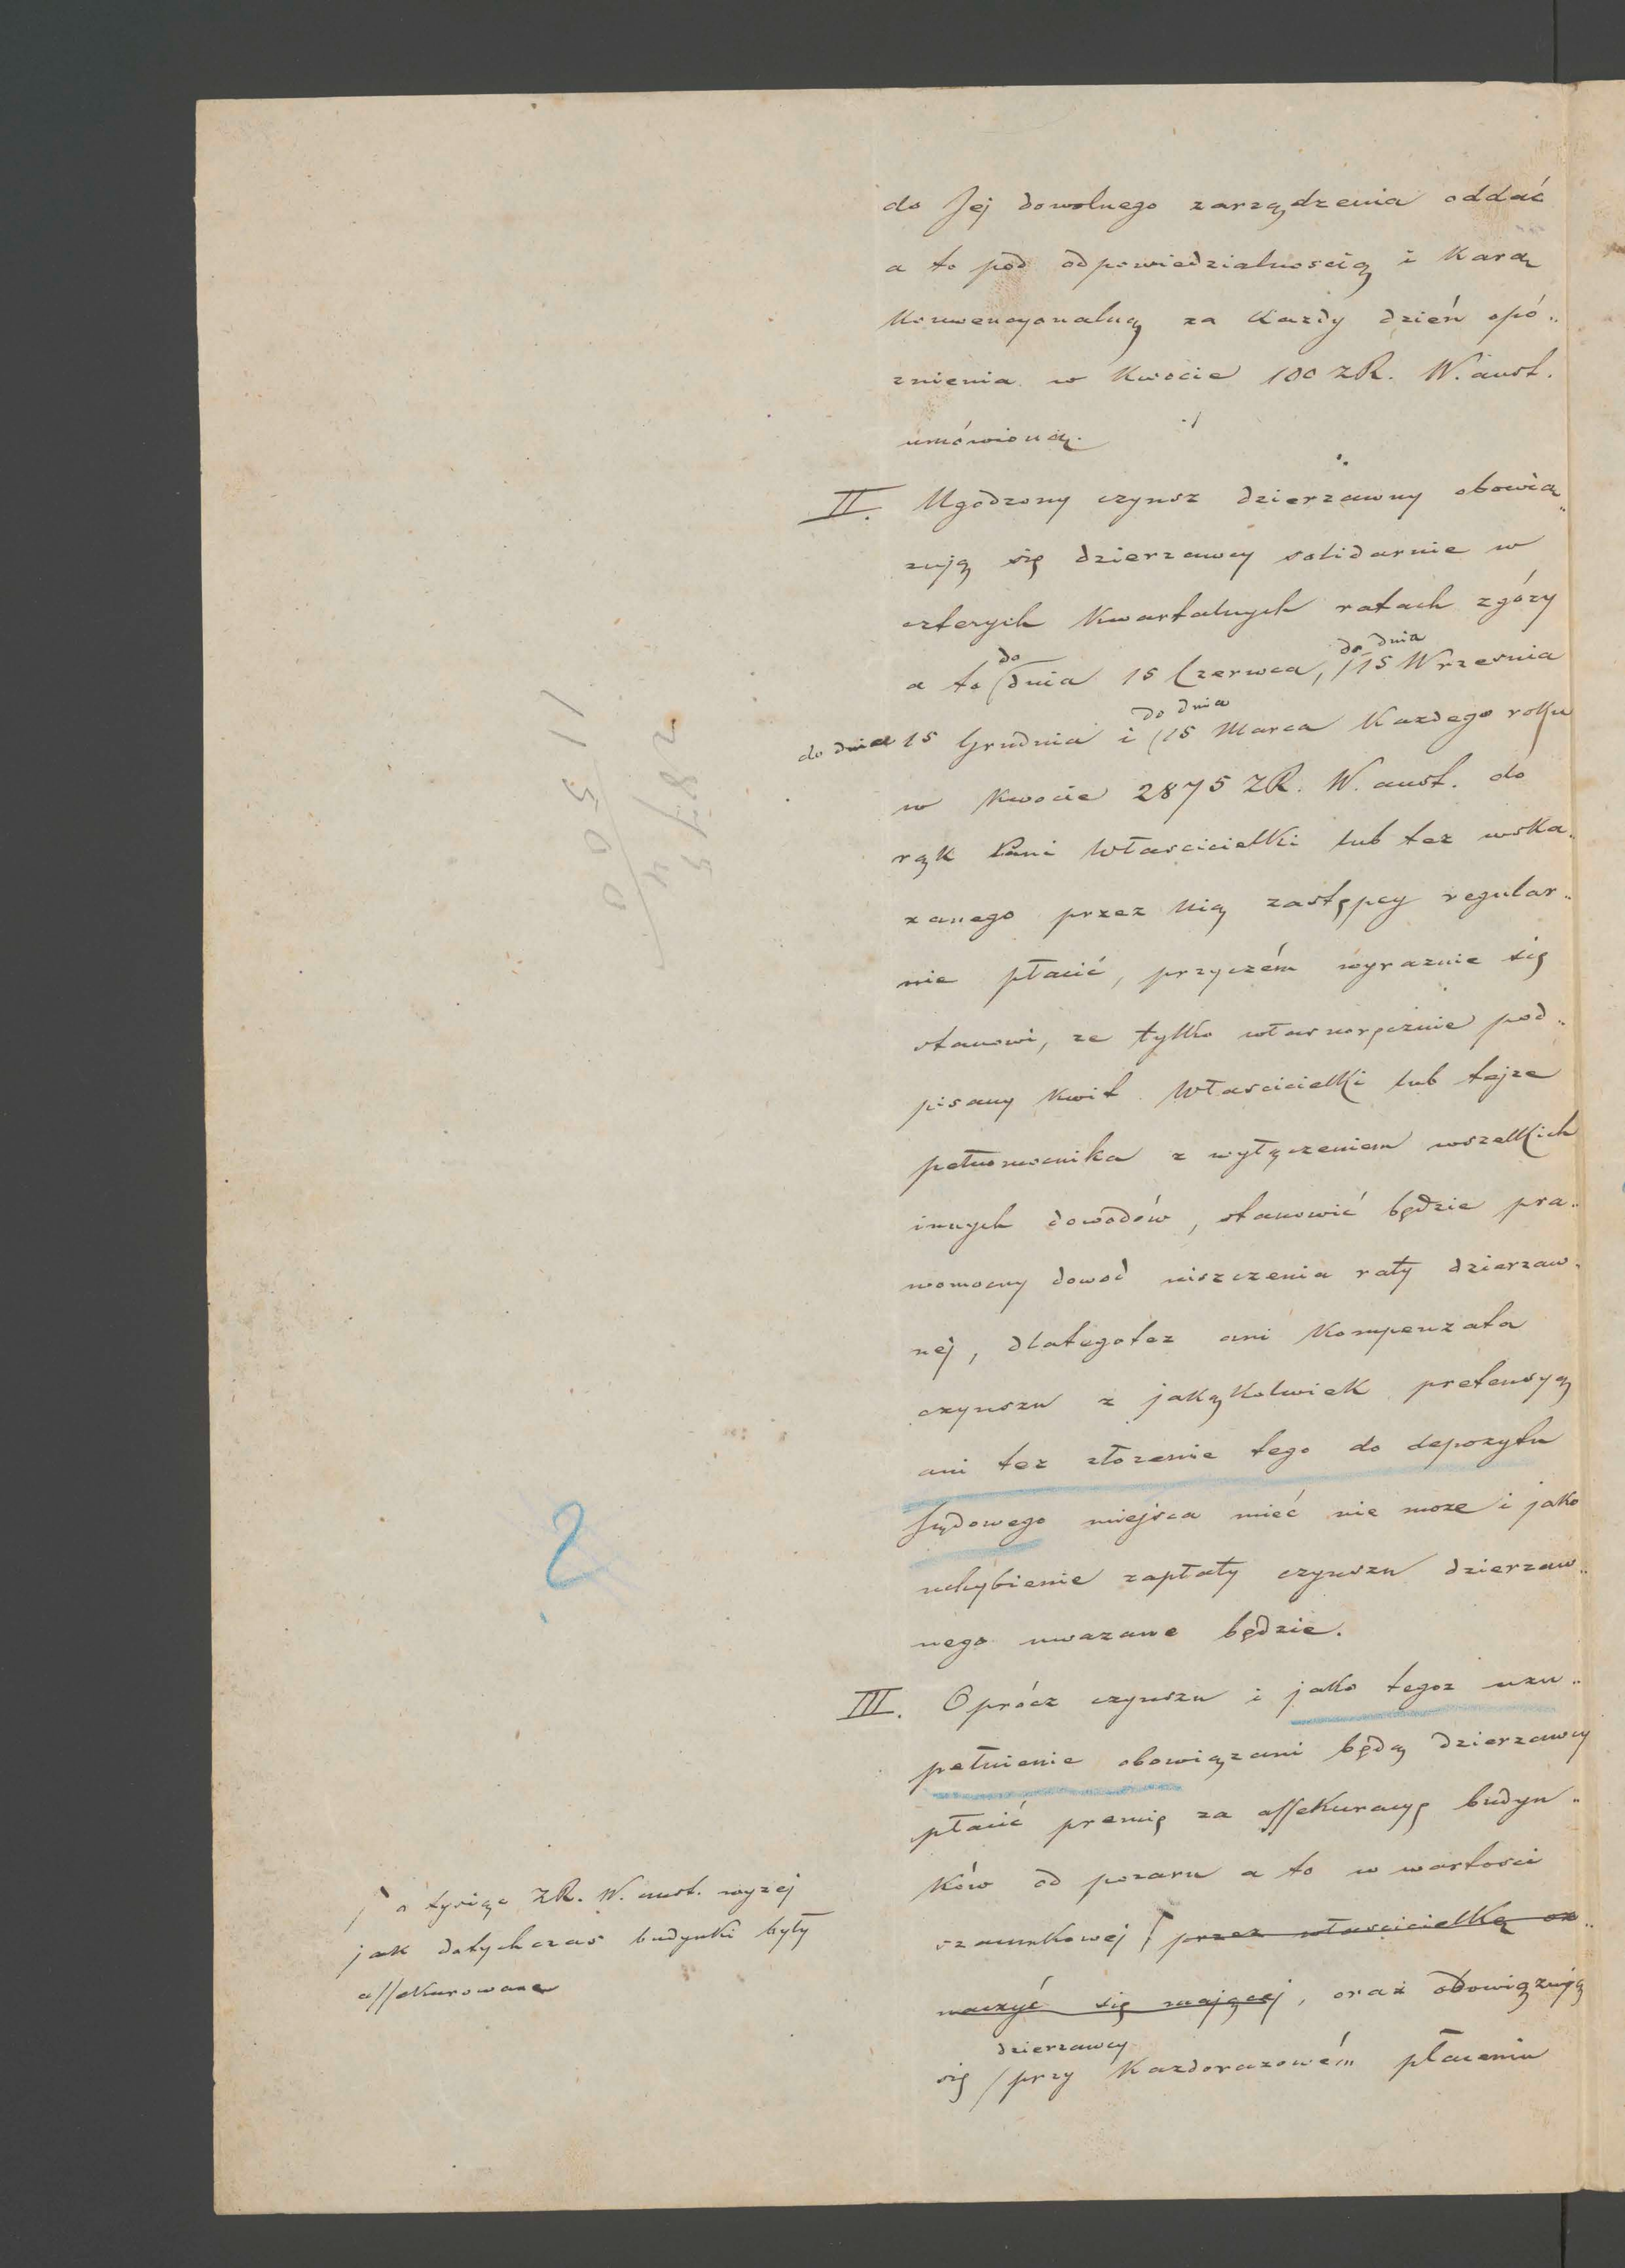 do Jej dowolnego zarządzenia oddać
a to pod odpowiedzialnoscią i Karą
Konwencyonalną za Kazdy dzień opó„
znienia w Kwocie 100 ZR. W. aust.
umówioną.
II. Ugodzony czynsz dzierzawny obowią„
zują się dzierzawcy solidarnie w
czterych Kwartalnych ratach zgóry
do do dnia
a to (dnia 15 Czerwca, /15 Wrzesnia
do dnia
do dnia 15 Grudnia i (15 Marca Kazdego roku
w Kwocie 2875 ZR. W. aust. do
rąk Pani Włascicielki lub tez wska„
zanego przez Nią zastępcy regular„
nie płacić, przyczém wyraznie się
stanowi, ze tylko własnoręcznie pod„
pisany Kwit Włascicielki lub tejze
pełnomocnika z wyłączeniem wszelkich
innych dowodów, stanowić będzie pra„
womocny dowod uiszczenia raty dzierzaw„
nej, dlategotez ani Kompenzata
czynszu z jakąkolwiek pretensyą
ani tez złozenie tego do depozytu
Sądowego miejsca mieć nie moze i jako
uchybienie zapłaty czynszu dzierzaw„
nego uwazane będzie.
III. Oprócz czynszu i jako tegoz uzu„
pełnienie obowiązani będą dzierzawcy
płacić premię za assekuracyę budyn„
ków od pozaru a to w wartosci
szacunkowej przez włascicielkę oz„
naczyć się mającej, oraz obowiązują
dzierzawcy
się /przy Kazdorazowém płaceniu
o tysiąc ZR. W. aust. wyzej
jak dotychczas budynki były
assekurowane
2875
4
11500
2